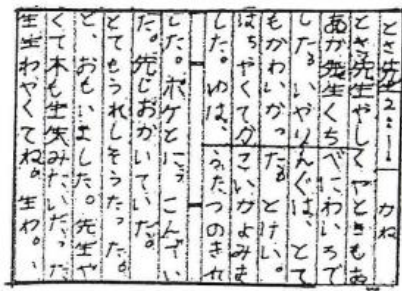 とき先生2:1 かね
とき先生やしくやときもお
あか先生くちべにわいちで
した。いやりんぐは、とて
もかわいかった。とけい。
はちやくてがこいがよみま
した。ゆは、うたつのきれ
した。ポケとにっこんでい
た。先じおかいていた。
とてもうれしそうたった。
と、おもいました。先生や
くて木も生失みたいだった
生生わやくてね。生わ。、